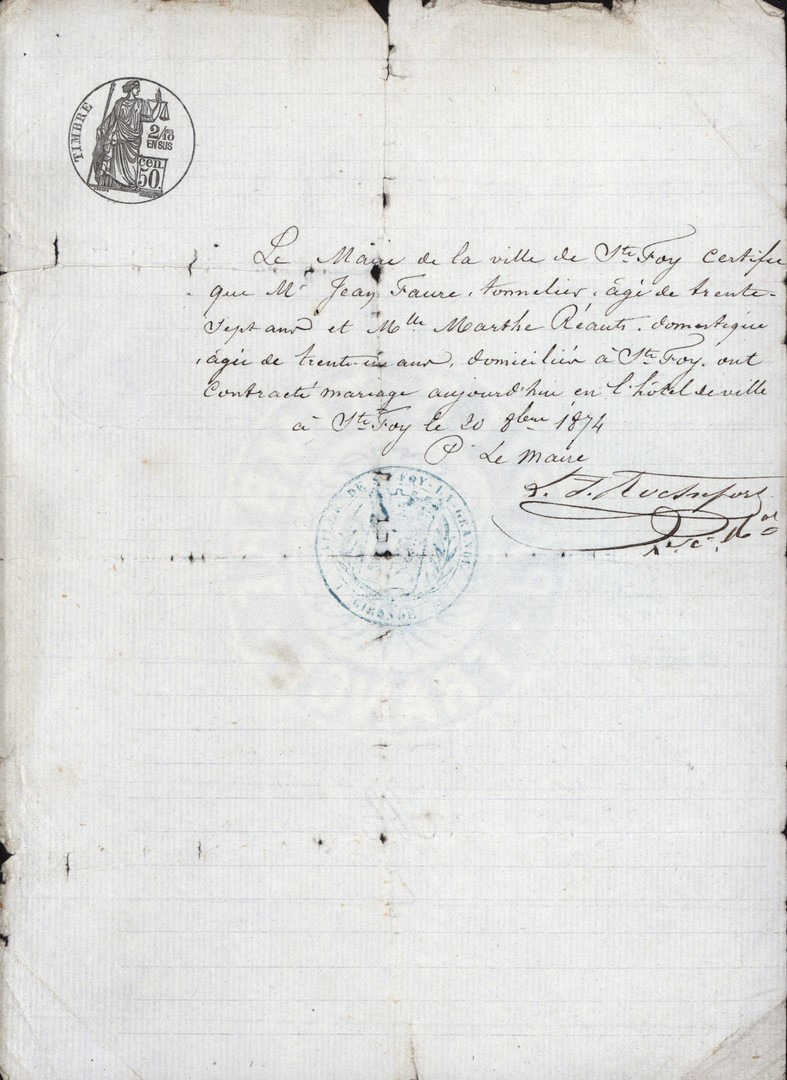 TIMBRE
2/10 EN SUS
cen. 50.
Le Maire de la ville de Ste Foy certifie
que Mr Jean Faure, tonnelier, âgé de trente-
sept ans et Mlle Marthe Réauts, domestique
âgée de trente-un ans, domiciliés à Ste Foy, ont
Contracté mariage aujourd'hui en l'hôtel de ville
à Ste Foy le 20 8bre 1874
P. Le Maire
VILLE DE STE FOY-LA-GRANDE
GIRONDE